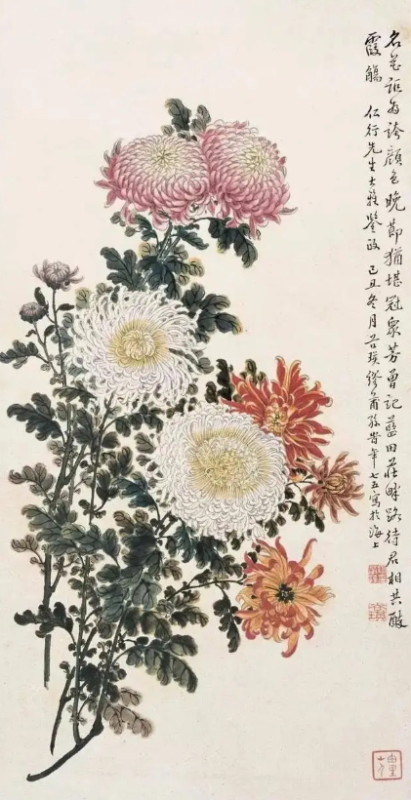 名花詎為誇顏色晚節猶堪冠衆芳曾記藍田莊畔路待君相共醉
霞觴 仁行先生大雅鑒政 己丑冬月谷瑛繆莆孫旹年七五寫於海上